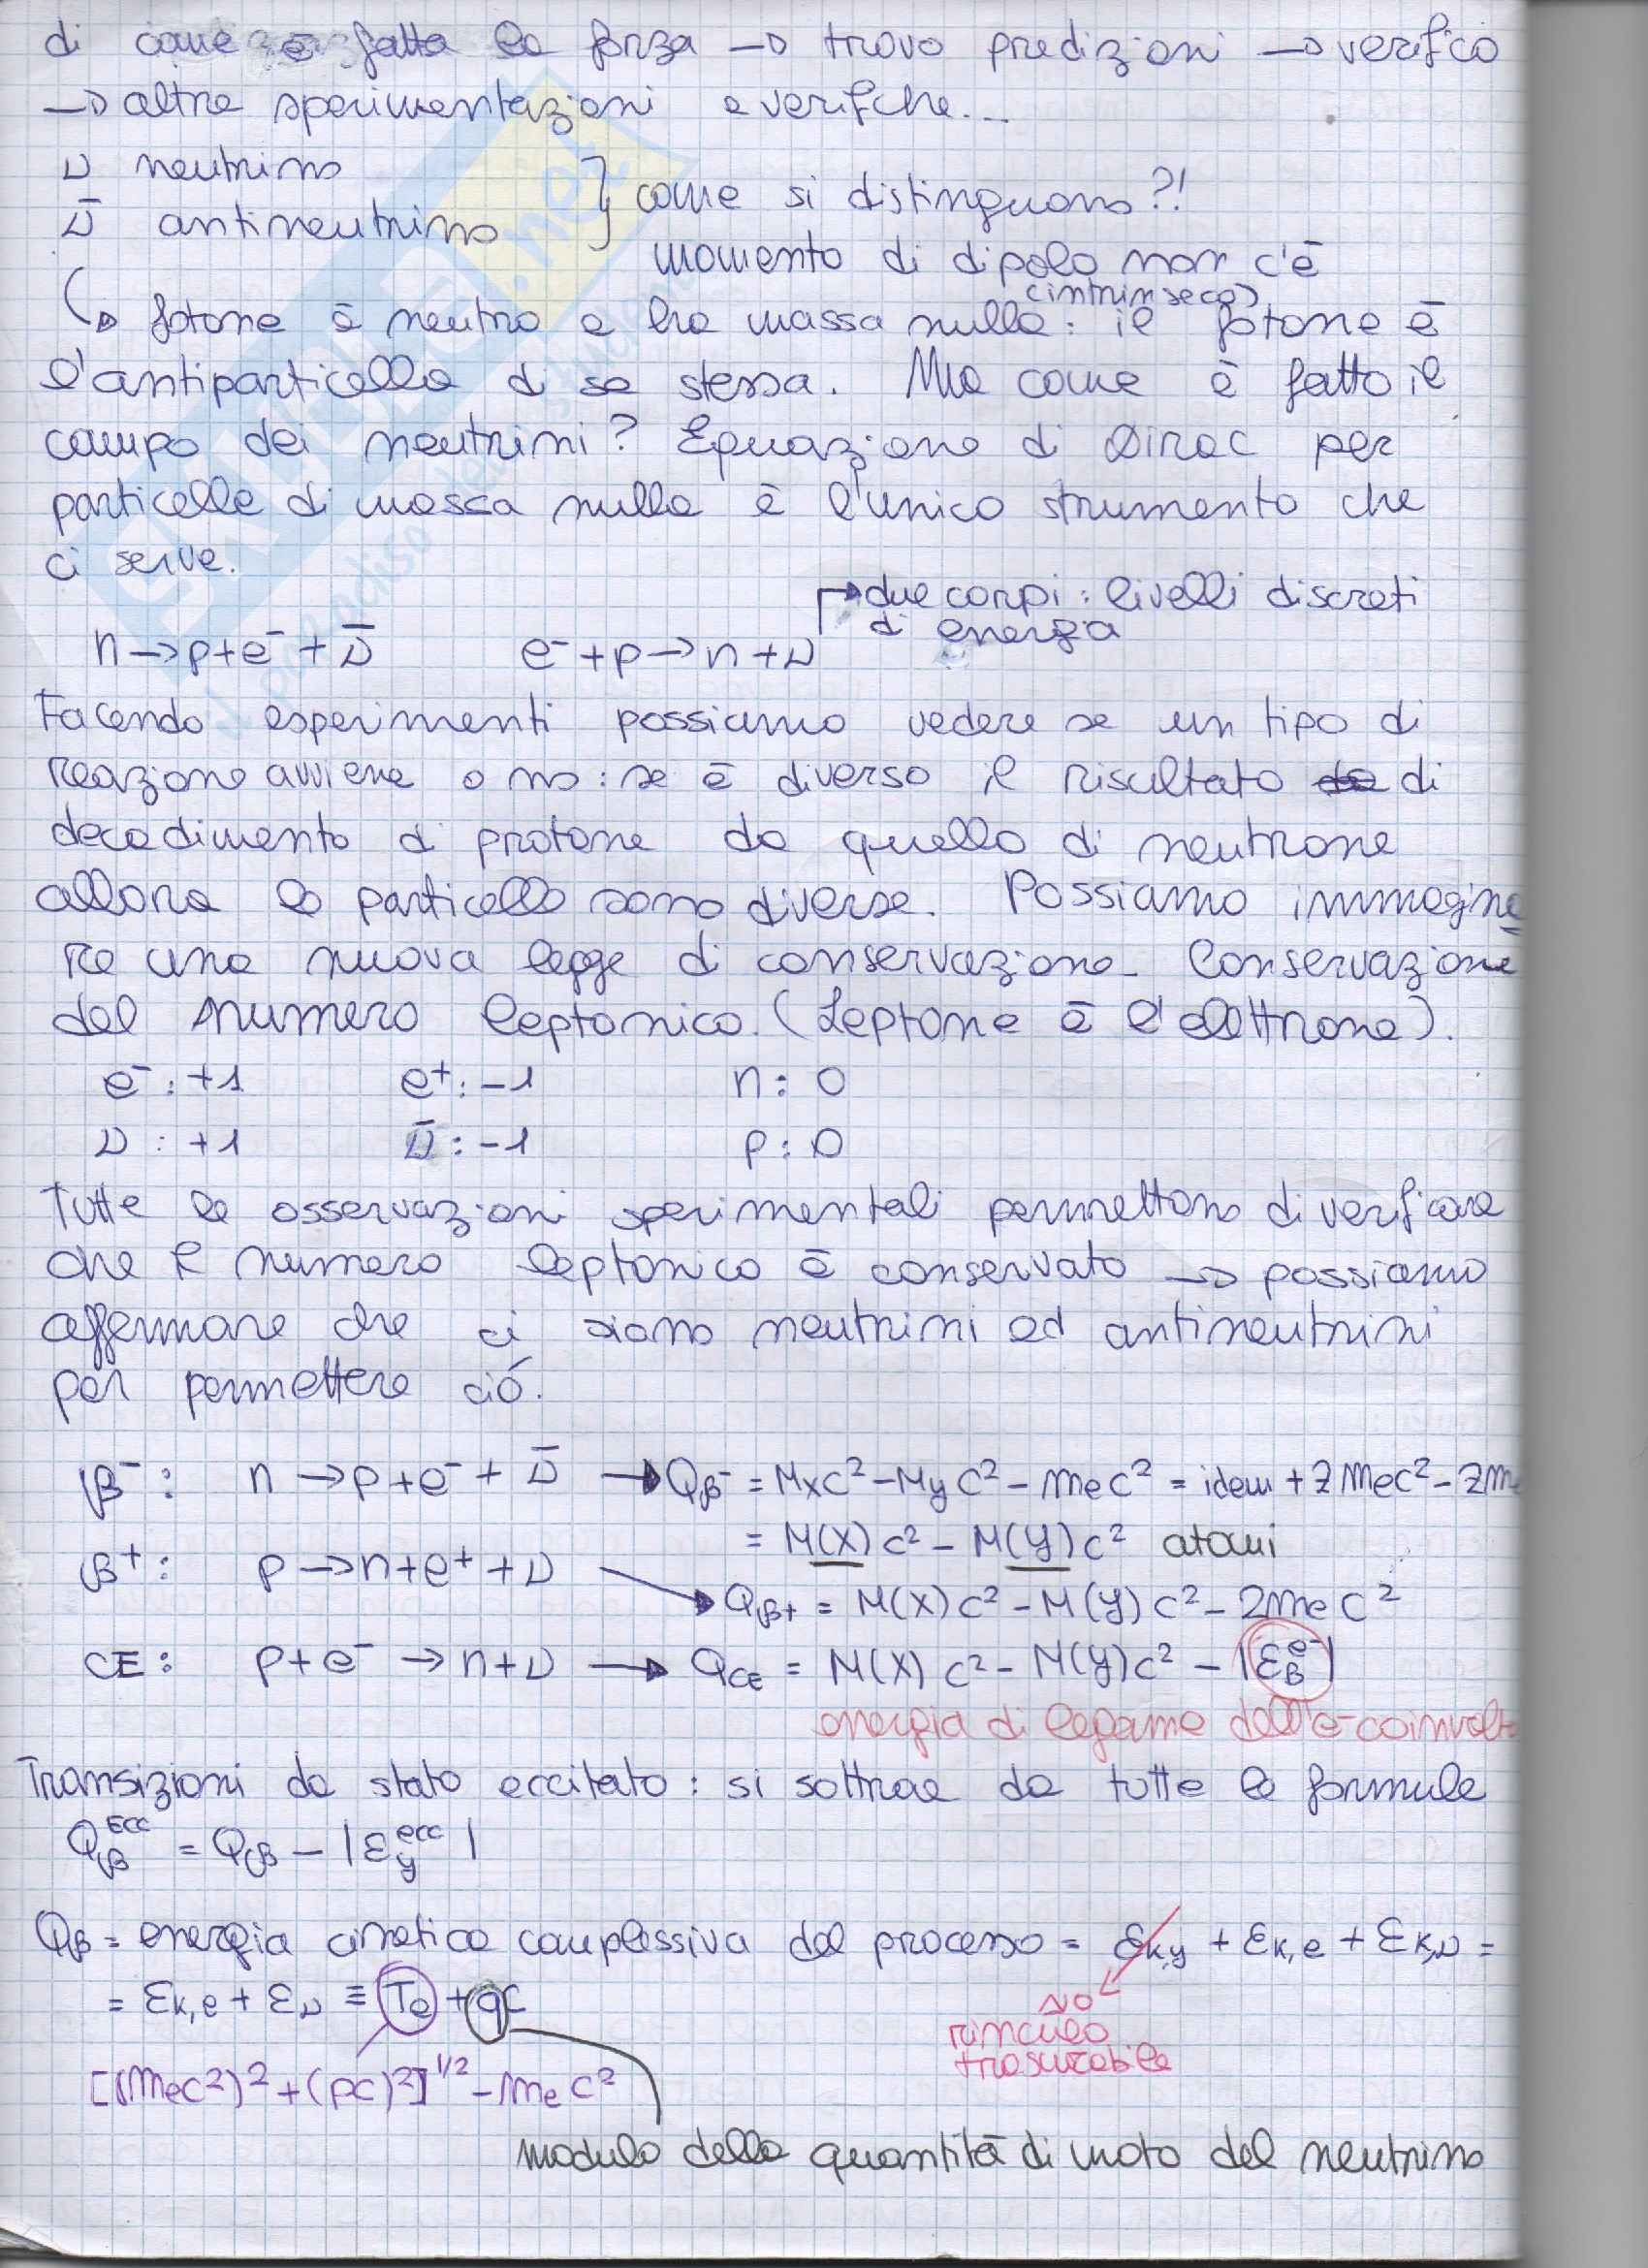 di come è fatta la forza → trovo predizioni → verifico
→ altre sperimentazioni e verifche...
ν neutrino
ν̄ antineutrino } come si distinguono?!
momento di dipolo non c'è
(intrinseco)
↳ fotone è neutro e ha massa nulla: il fotone è
l'antiparticella di se stessa. Ma come è fatto il
campo dei neutrini? Equazione di Dirac per
particelle di massa nulla è l'unico strumento che
ci serve.
↱ due corpi: livelli discreti
di energia
n → p + e⁻ + ν̄ e⁻ + p → n + ν
Facendo esperimenti possiamo vedere se un tipo di
reazione avviene o no: se è diverso il risultato di
decadimento di protone da quello di neutrone
allora le particelle sono diverse. Possiamo immagina
re una nuova legge di conservazione. Conservazione
del numero leptonico. (Leptone è l'elettrone).
e⁻: +1 e⁺: -1 n: 0
ν: +1 ν̄: -1 p: 0
Tutte le osservazioni sperimentali permettono di verificare
che il numero leptonico è conservato → possiamo
affermare che ci siano neutrini ed antineutrini
per permettere ció.
β⁻: n → p + e⁻ + ν̄ → Qβ⁻ = Mxc² - Myc² - mec² = idem + Zmec² - Zm
= M(X)c² - M(Y)c² atomi
β⁺: p → n + e⁺ + ν
→ Qβ+ = M(X)c² - M(Y)c² - 2mec²
CE: p + e⁻ → n + ν → QCE = M(X)c² - M(Y)c² - |εB^e⁻|
energia di legame dell'e⁻ coinvolt
Transizioni da stato eccitato: si sottrae da tutte le formule
Qβ^ECC = Qβ - |εy^ecc|
Qβ = energia cinetica complessiva del processo = εk,y + εk,e + εk,ν =
= εk,e + εν ≡ Te + qc
NO
rinculo
trascurabile
[(mec²)² + (pc)²]^1/2 - mec²
modulo della quantità di moto del neutrino